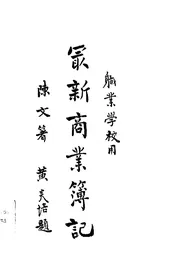 職業學校用
最新商業簿記
陳文著
黃炎培題